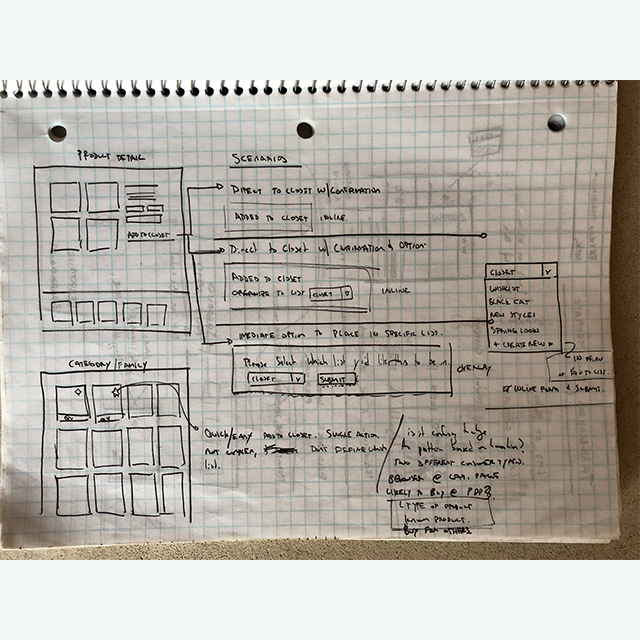 PRODUCT DETAIL
ADD TO CLOSET
SCENARIOS
DIRECT TO CLOSET W/CONFIRMATION
ADDED TO CLOSET INLINE
DIRECT TO CLOSET W/ CONFIRMATION & OPTION
ADDED TO CLOSET
ORGANIZE TO LIST CLOSET V
INLINE
IMEDIATE OPTION TO PLACE IN SPECIFIC LIST.
Please Select Which list you'd like this to be in
CLOSET V SUBMIT
OVERLAY
CLOSET V
WISHLIST
BLACK CAT
NEW STYLES
SPRING LOOKS
+ CREATE NEW
IN MENU
GO TO LIST.
INLINE FORM & SUBMIT.
CATEGORY/FAMILY
QUICK/EASY ADD TO CLOSET. SINGLE ACTION
NOT COMPLEX, DON'T DEFINE WHICH
LIST.
is it confusing having
the pattern based on location?
TWO DIFFERENT CONSUMER TYPES.
BROWSER @ PAGES
LIKELY TO BUY @ PDP?
TYPE OF PRODUCT
PRODUCT.
BUY FOR OTHERS